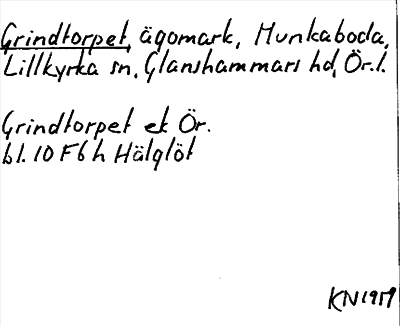 Grindtorpet, ägomark, Munkaboda,
Lillkyrka sn, Glanshammars hd, Ör. l.
Grindtorpet ek Ör.
bl. 10 F 6 h Hälglöt
KN 1979